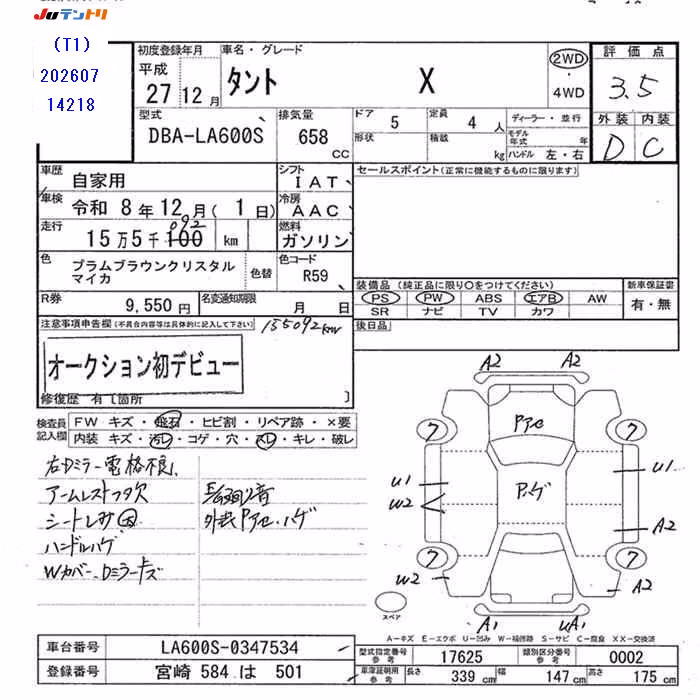 JUテントリ
(T1)
202607
14218
初度登録年月
平成
27 12月
車名・グレード
タント X
2WD
・
4WD
評価点
3.5
外装 内装
D C
型式
DBA-LA600S
排気量
658
CC
ドア 5
形状
定員 4 人
積載 kg
ディーラー・並行
モデル年式 年
ハンドル 左・右
車歴 自家用
シフト IAT
車検 令和 8年 12月( 1日)
冷房 AAC
走行 15万5千100 km
092
燃料 ガソリン
色 プラムブラウンクリスタル
マイカ
色替
色コード R59
R券 9,550 円
名変通知期限 月 日
セールスポイント(正常に機能するものに限ります)
装備品 (純正品に限り○をつけてください)
PS PW ABS エアB AW
SR ナビ TV カワ
新車保証書
有・無
後日品
注意事項申告欄(不具合内容等は具体的に記入して下さい)
155092km
オークション初デビュー
修復歴 有〔箇所 〕
検査員
記入欄
FW キズ・飛石・ヒビ割・リペア跡・×要
内装 キズ・汚レ・コゲ・穴・スレ・キレ・破レ
右Dミラー電格不良、
アームレストフタ欠
シートしみ大
ハンドルハゲ
Wカバー、Dミラーキズ
外装Pアセ・ハゲ
A2 A2
Pアセ
7 7
U1 U1
W2
P.ハゲ
A2
7 7
W2 A2
A1 UA1
スペア
A－キズ E－エクボ U－凹み W－補修跡 S－サビ C－腐食 XX－交換済
車台番号 LA600S-0347534
登録番号 宮崎 584 は 501
型式指定番号
参考
17625
類別区分番号
参考
0002
車庫証明用
参考
長さ 339 cm 幅 147 cm 高さ 175 cm